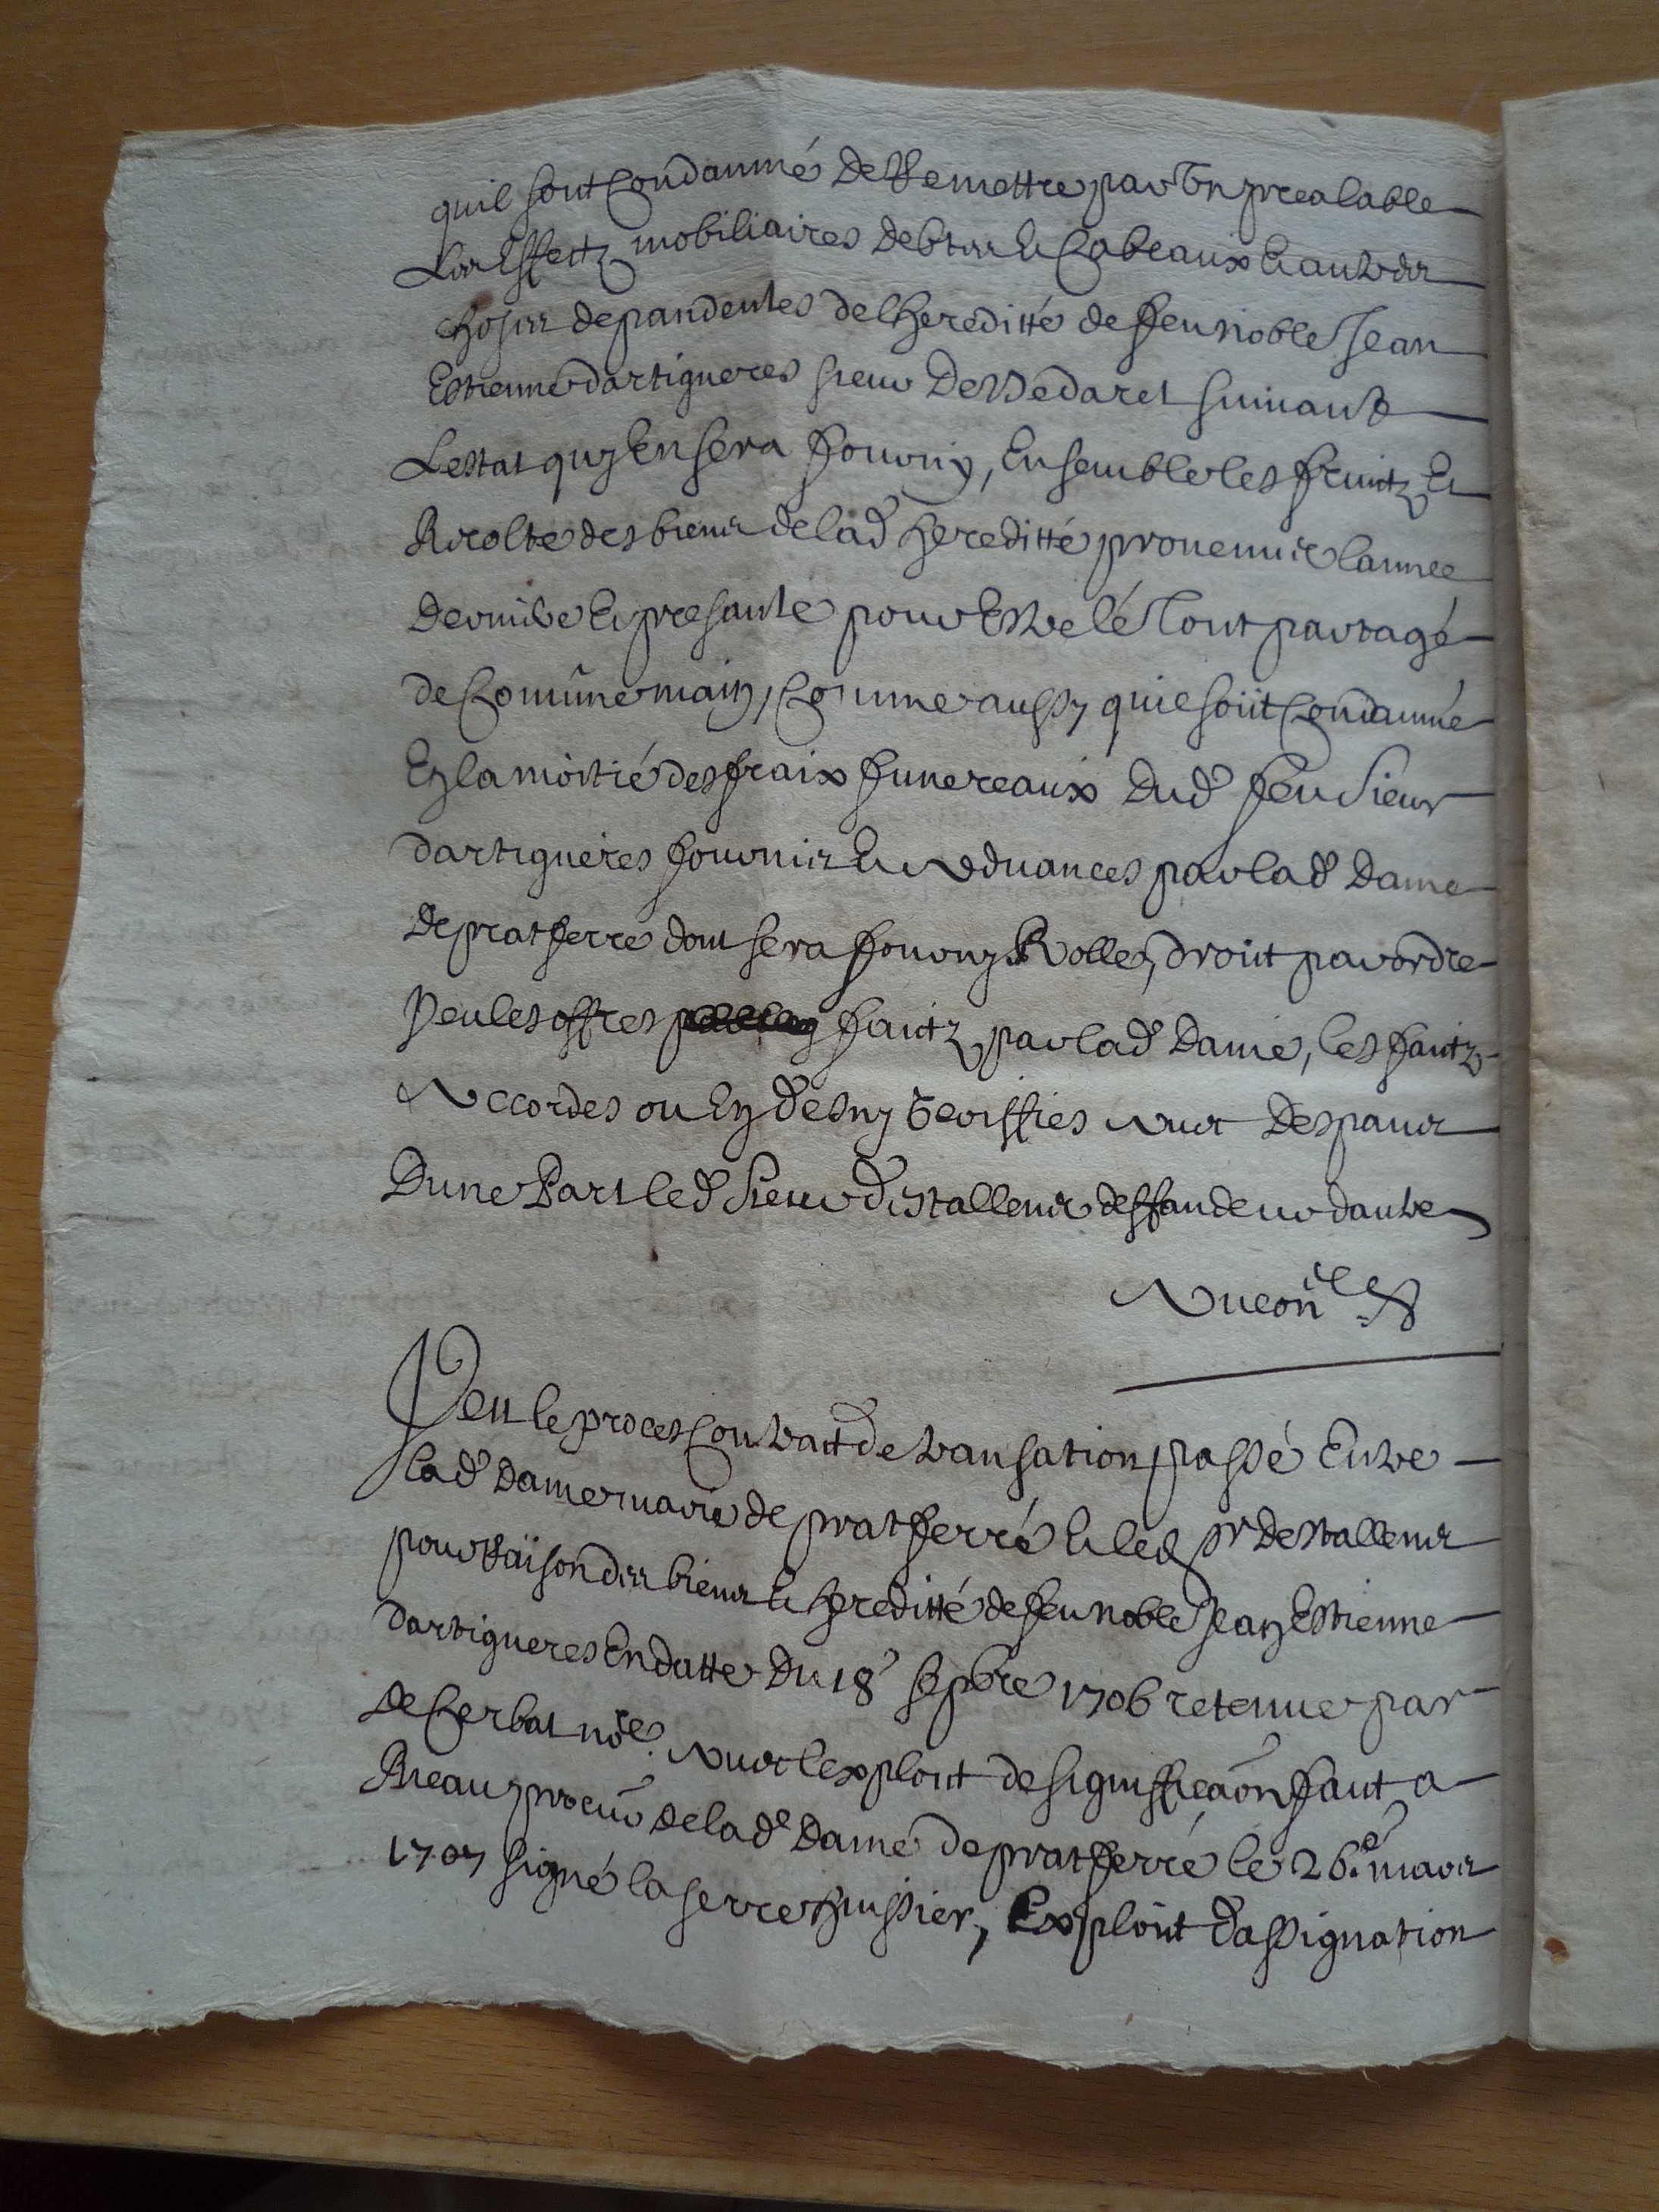 quil soit condamné de Remettre par Un prealable
Les Effectz mobiliaires debtes Et Cabeaux Et autres
choses dependentes del heredité de feu noble Jean
Estienne dartigueres sieur De Vedaret suivant
Lestat quy En sera fourny, Ensemble les fruitz Et
Recolte des biens de lad heredité provenus lannee
derniere Et presante pour Estre le Tout partagé
de Comune main, Comme aussy quil soit Condamné
En la moitié des fraix funereaux Dud feu Sieur
dartigueres fournis Et Advances par lad Dame
de pratferré dont sera fourny Rolle, droit par ordre
Veu les offres faitz par lad Dame, les faitz
Accordes ou En desny Veriffies avec Despans
Dune Part led Sieur deffandeur dautre
Veu le proces Contract de transation passé Entre
lad Dame marie de pratferré Et led Sr
pour Raison des biens Et heredité de feu noble Jean Estienne
dartigueres En datte Du 18e sepbre 1706 retenue par
de Cerbat nore. avec lexploit de signifficaon fait a
procur de lad Dame de pratferré le 26e mars
1707 signé laserre huissier, Exploit dassignation